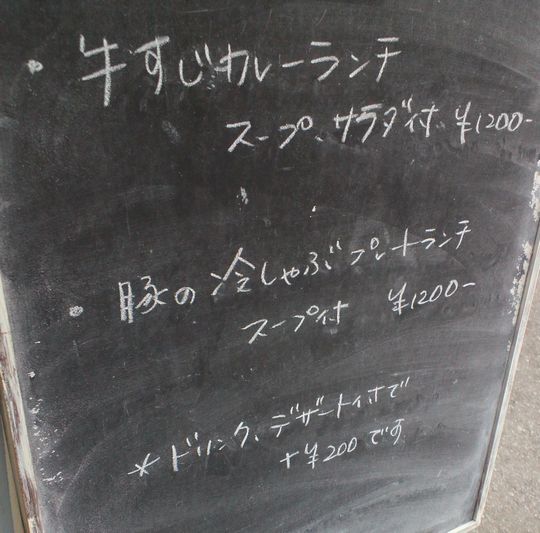 ・牛すじカレーランチ
スープ、サラダ付 ¥1200-
・豚の冷しゃぶプレートランチ
スープ付 ¥1200-
*ドリンク、デザート付で
+¥200です